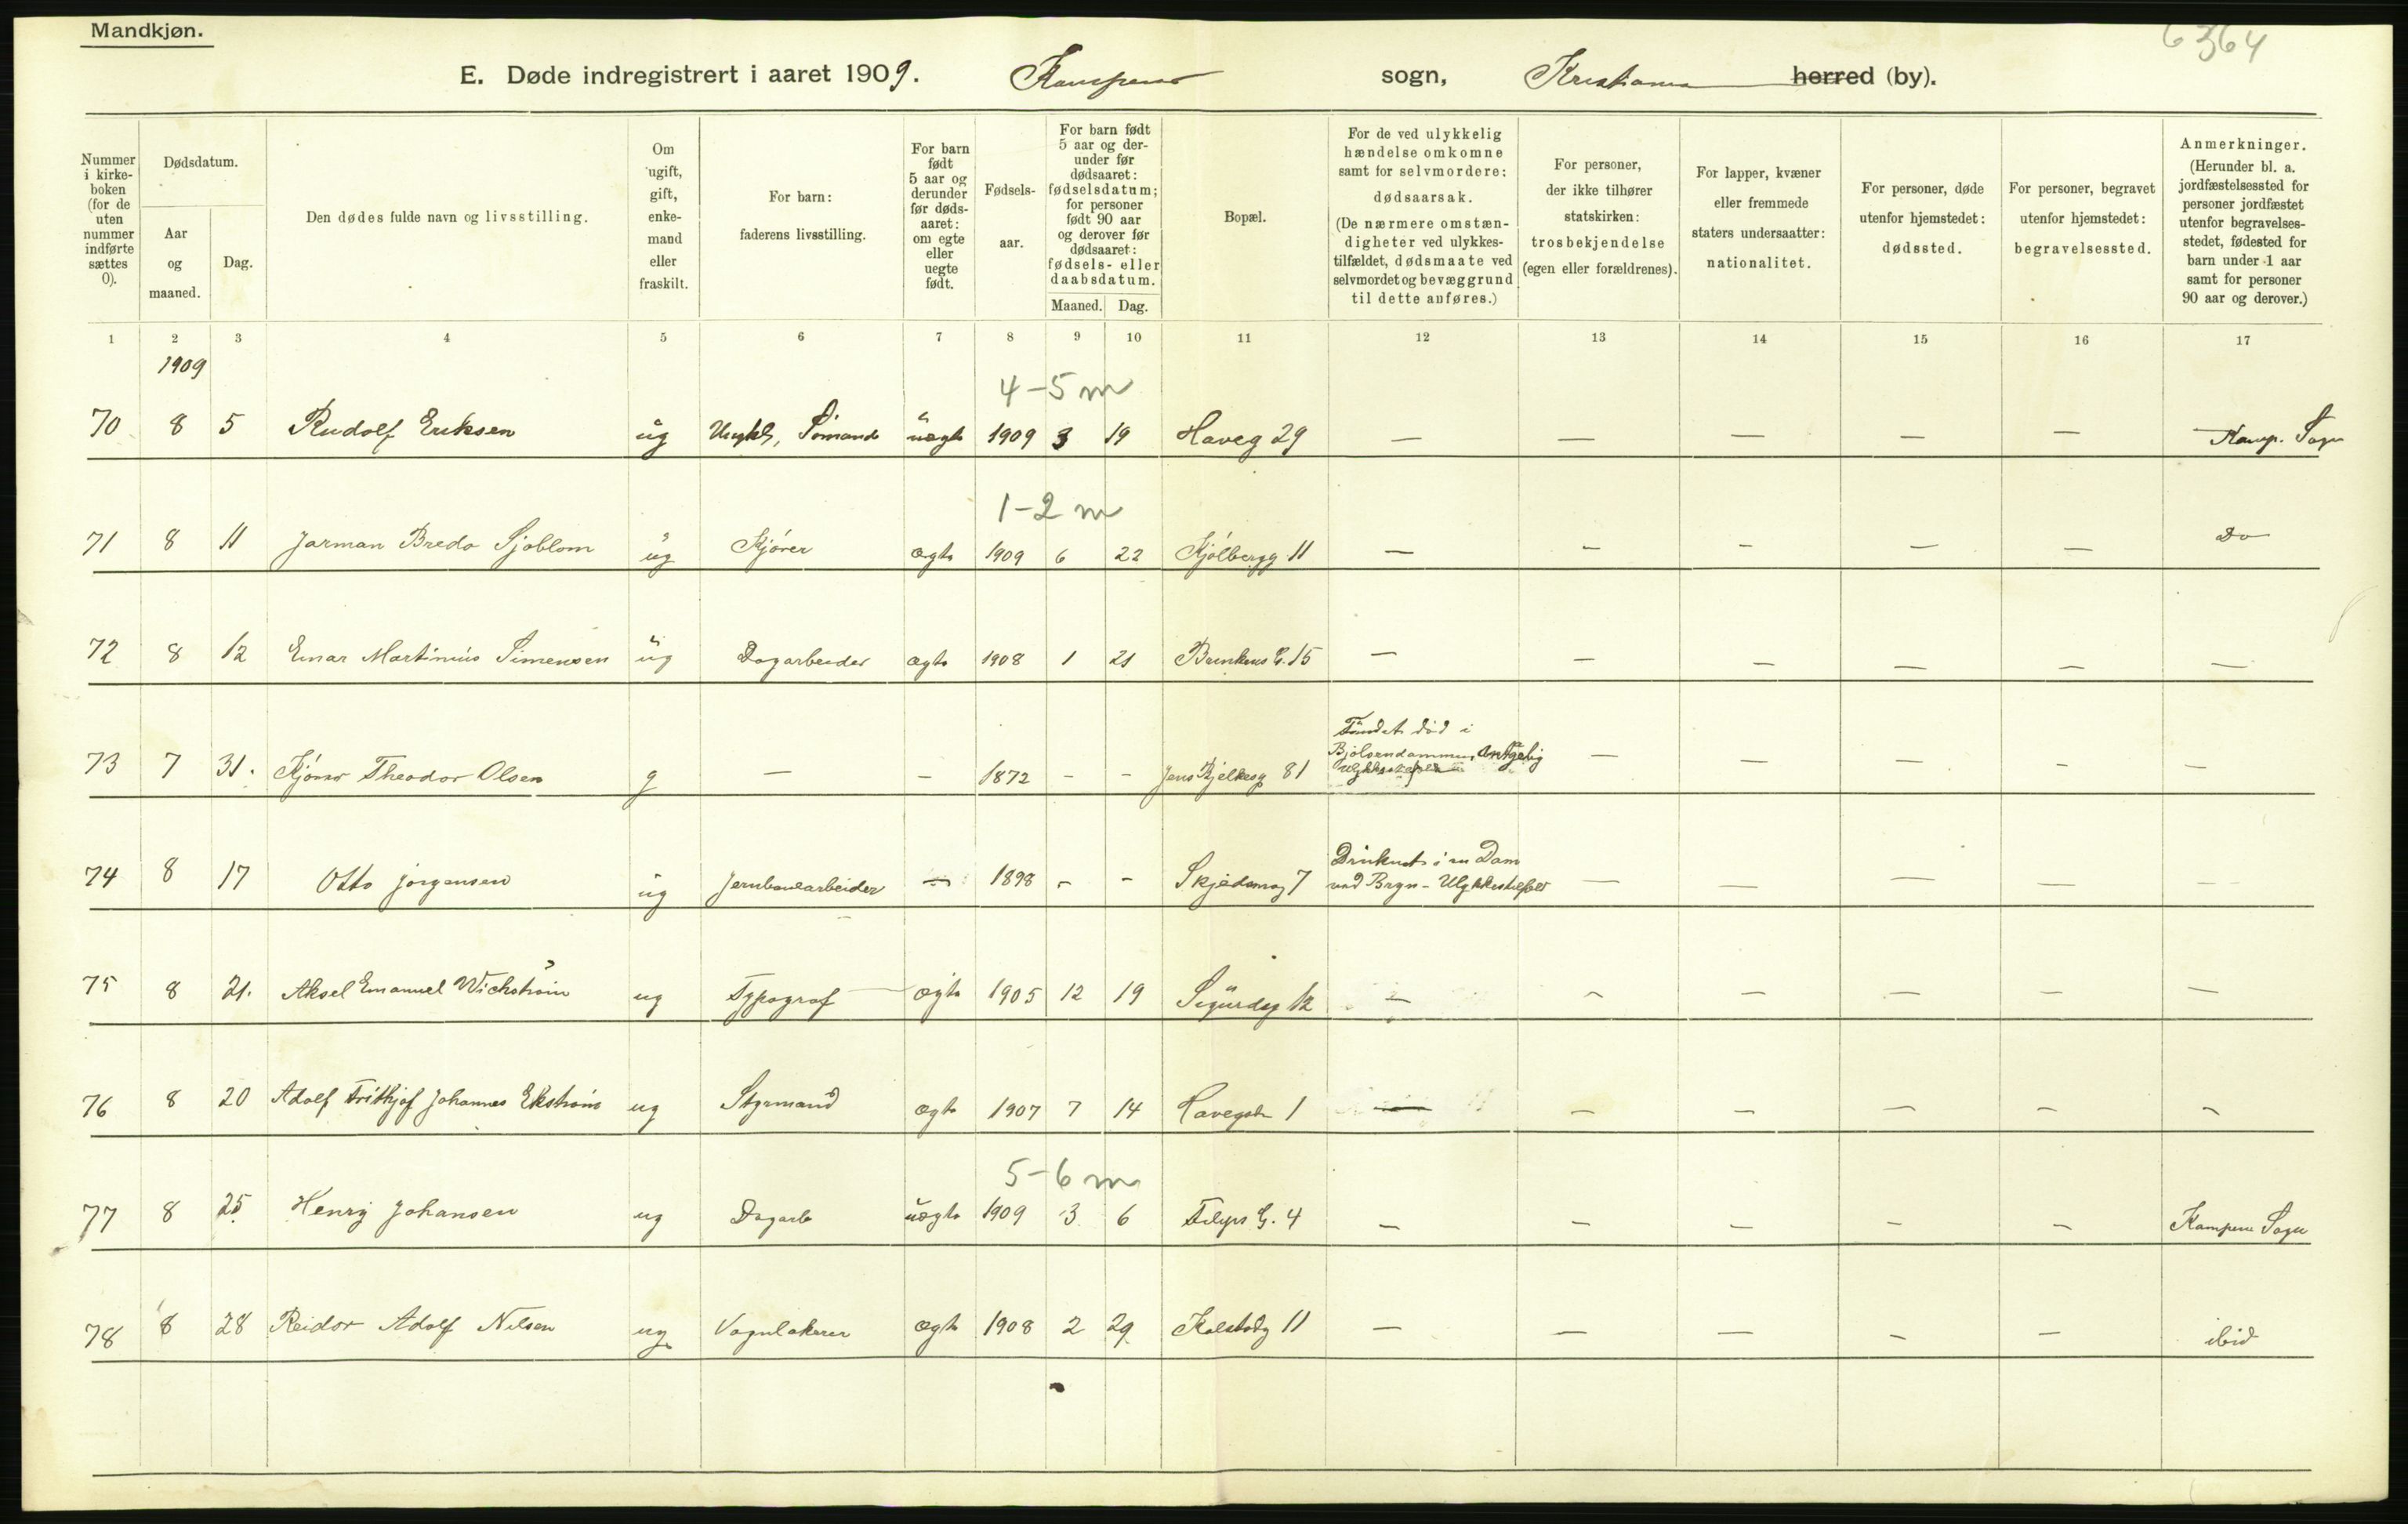 Mandkjøn.
6364
E. Døde indregistrert i aaret 1909. Kampens sogn, Kristiania herred (by).
Nummer i kirkeboken (for de uten nummer indførte sættes 0).
Dødsdatum.
Aar og maaned.
Dag.
Den dødes fulde navn og livsstilling.
Om ugift, gift, enkemand eller fraskilt.
For barn: faderens livsstilling.
For barn født 5 aar og derunder før dødsaaret: om egte eller uegte født.
Fødselsaar.
For barn født 5 aar og derunder før dødsaaret: fødselsdatum; for personer født 90 aar og derover før dødsaaret: fødsels- eller daabsdatum.
Maaned. Dag.
Bopæl.
For de ved ulykkelig hændelse omkomne samt for selvmordere: dødsaarsak. (De nærmere omstændigheter ved ulykkestilfældet, dødsmaate ved selvmordet og bevæggrund til dette anføres.)
For personer, der ikke tilhører statskirken: trosbekjendelse (egen eller forældrenes).
For lapper, kvæner eller fremmede staters undersaatter: nationalitet.
For personer, døde utenfor hjemstedet: dødssted.
For personer, begravet utenfor hjemstedet: begravelsessted.
Anmerkninger. (Herunder bl. a. jordfæstelsessted for personer jordfæstet utenfor begravelsesstedet, fødested for barn under 1 aar samt for personer 90 aar og derover.)
1 2 3 4 5 6 7 8 9 10 11 12 13 14 15 16 17
1909
4-5 m
70 8 5 Rudolf Eriksen ug Ungk, Sømand uægte 1909 3 19 Haveg 29 — — — — — Kamp. Sogn
1-2 m
71 8 11 Jarman Bredo Sjøblom ug Kjører ægte 1909 6 22 Kjølbergg 11 — — — — — Do
72 8 12 Einar Martinius Simensen ug Dagarbeider ægte 1908 1 21 Brinkens G. 15 — — — — — —
73 7 31. Theodor Olsen g — — 1872 - - Jens Bjelkesg 81 Fundet død i Bjølsendammen, antagelig — — — — —
74 8 17 Otto Jørgensen ug Jernbanearbeider — 1898 - - 7 Druknet i en Dam ved Bryn - Ulykkestilfæl — — — — —
75 8 21. Aksel Emanuel Wickstrøm ug Typograf ægte 1905 12 19 Sigurdsg 12 — — — — — —
76 8 20 Adolf Frithjof Johannes Ekstrøm ug Styrmand ægte 1907 7 14 Havegat 1 — — — — — —
5-6 m
77 8 25 Henry Johansen ug Dagarb uægte 1909 3 6 G. 4 — — — — — Kampens Sogn
78 8 28 Reidar Adolf Nilsen ug Vognlakerer ægte 1908 2 29 Kolstadg 11 — — — — — ibid